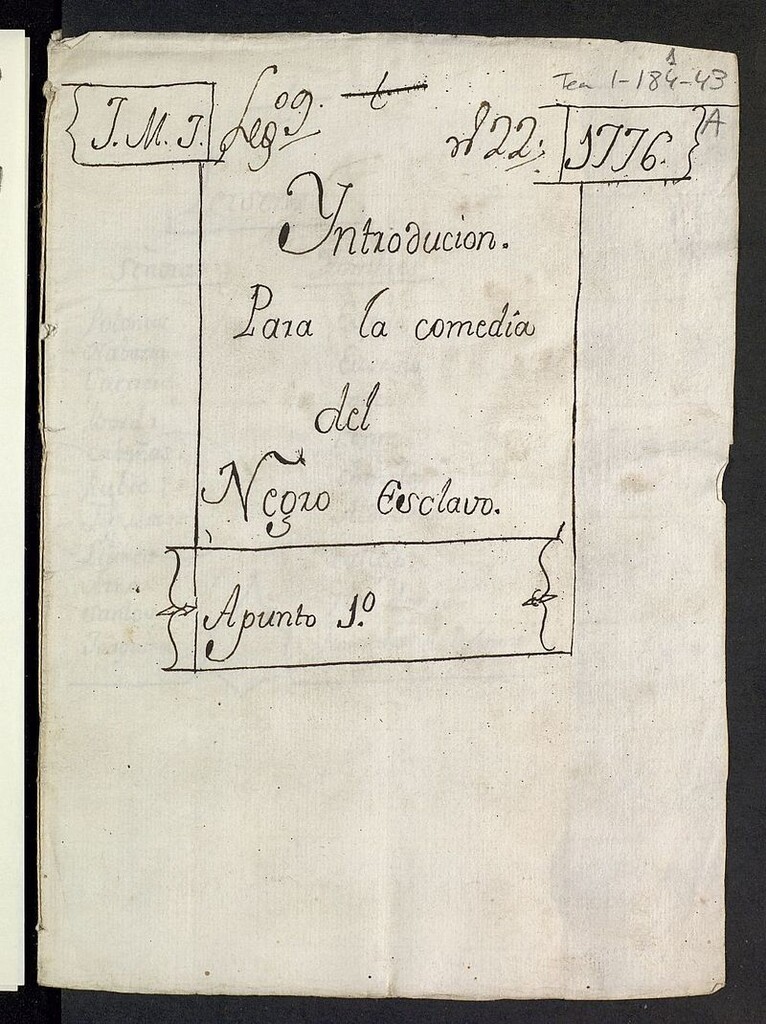 Tea 1-184-43
A
J. M. J. Leg.º 9. t nº 22. 1776.
Yntroducion.
Para la comedia
del
Negro Esclavo.
Apunto 1.º